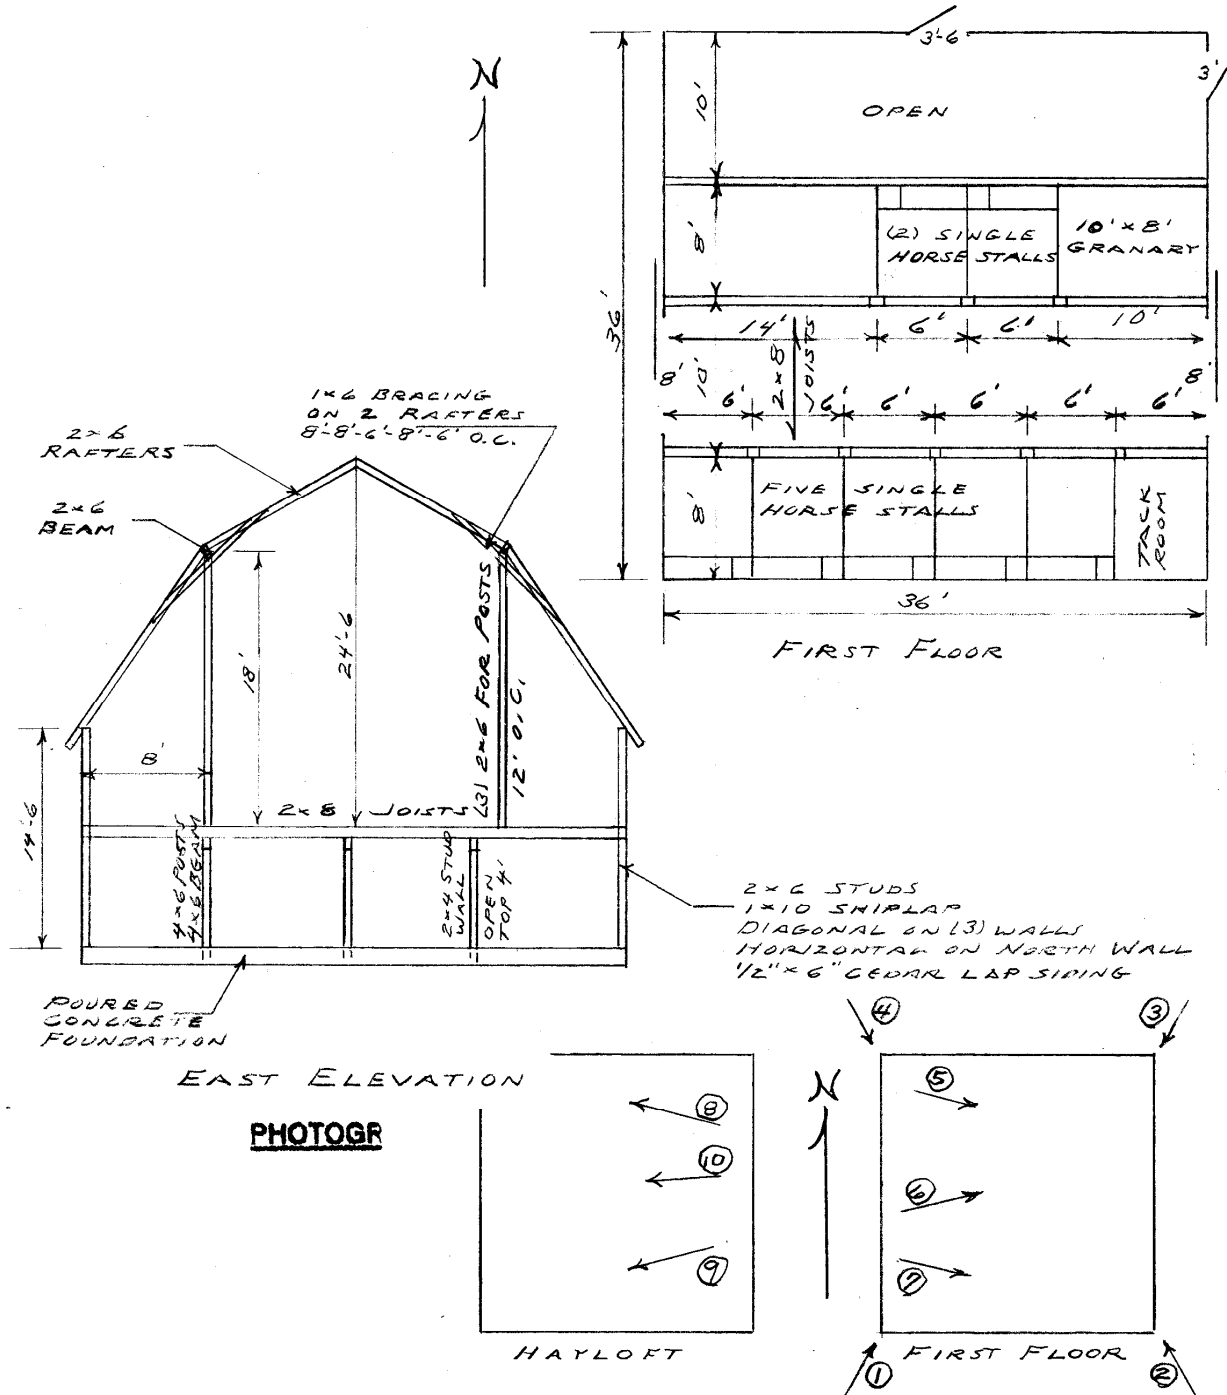 N
3'-6
3'
10'
OPEN
36'
8'
(2) SINGLE
HORSE STALLS
10' × 8'
GRANARY
14'
6'
6'
10'
8'
10'
2×8
JOISTS
8'
6'
6'
6'
6'
6'
6'
8'
FIVE SINGLE
HORSE STALLS
TACK
ROOM
36'
FIRST FLOOR
1×6 BRACING
ON 2 RAFTERS
8'-8'-6'-8'-6' O.C.
2×6
RAFTERS
2×6
BEAM
18'
24'-6
(3) 2×6 FOR POSTS
12' O.C.
8'
14'-6
2×8 JOISTS
4×6 POSTS
4×6 BEAM
2×4 STUD
WALL
OPEN
TOP 4'
2×6 STUDS
1×10 SHIPLAP
DIAGONAL ON (3) WALLS
HORIZONTAL ON NORTH WALL
1/2" × 6" CEDAR LAP SIDING
POURED
CONCRETE
FOUNDATION
EAST ELEVATION
PHOTOGR
8
10
9
HAYLOFT
N
4
3
5
6
7
FIRST FLOOR
1
2